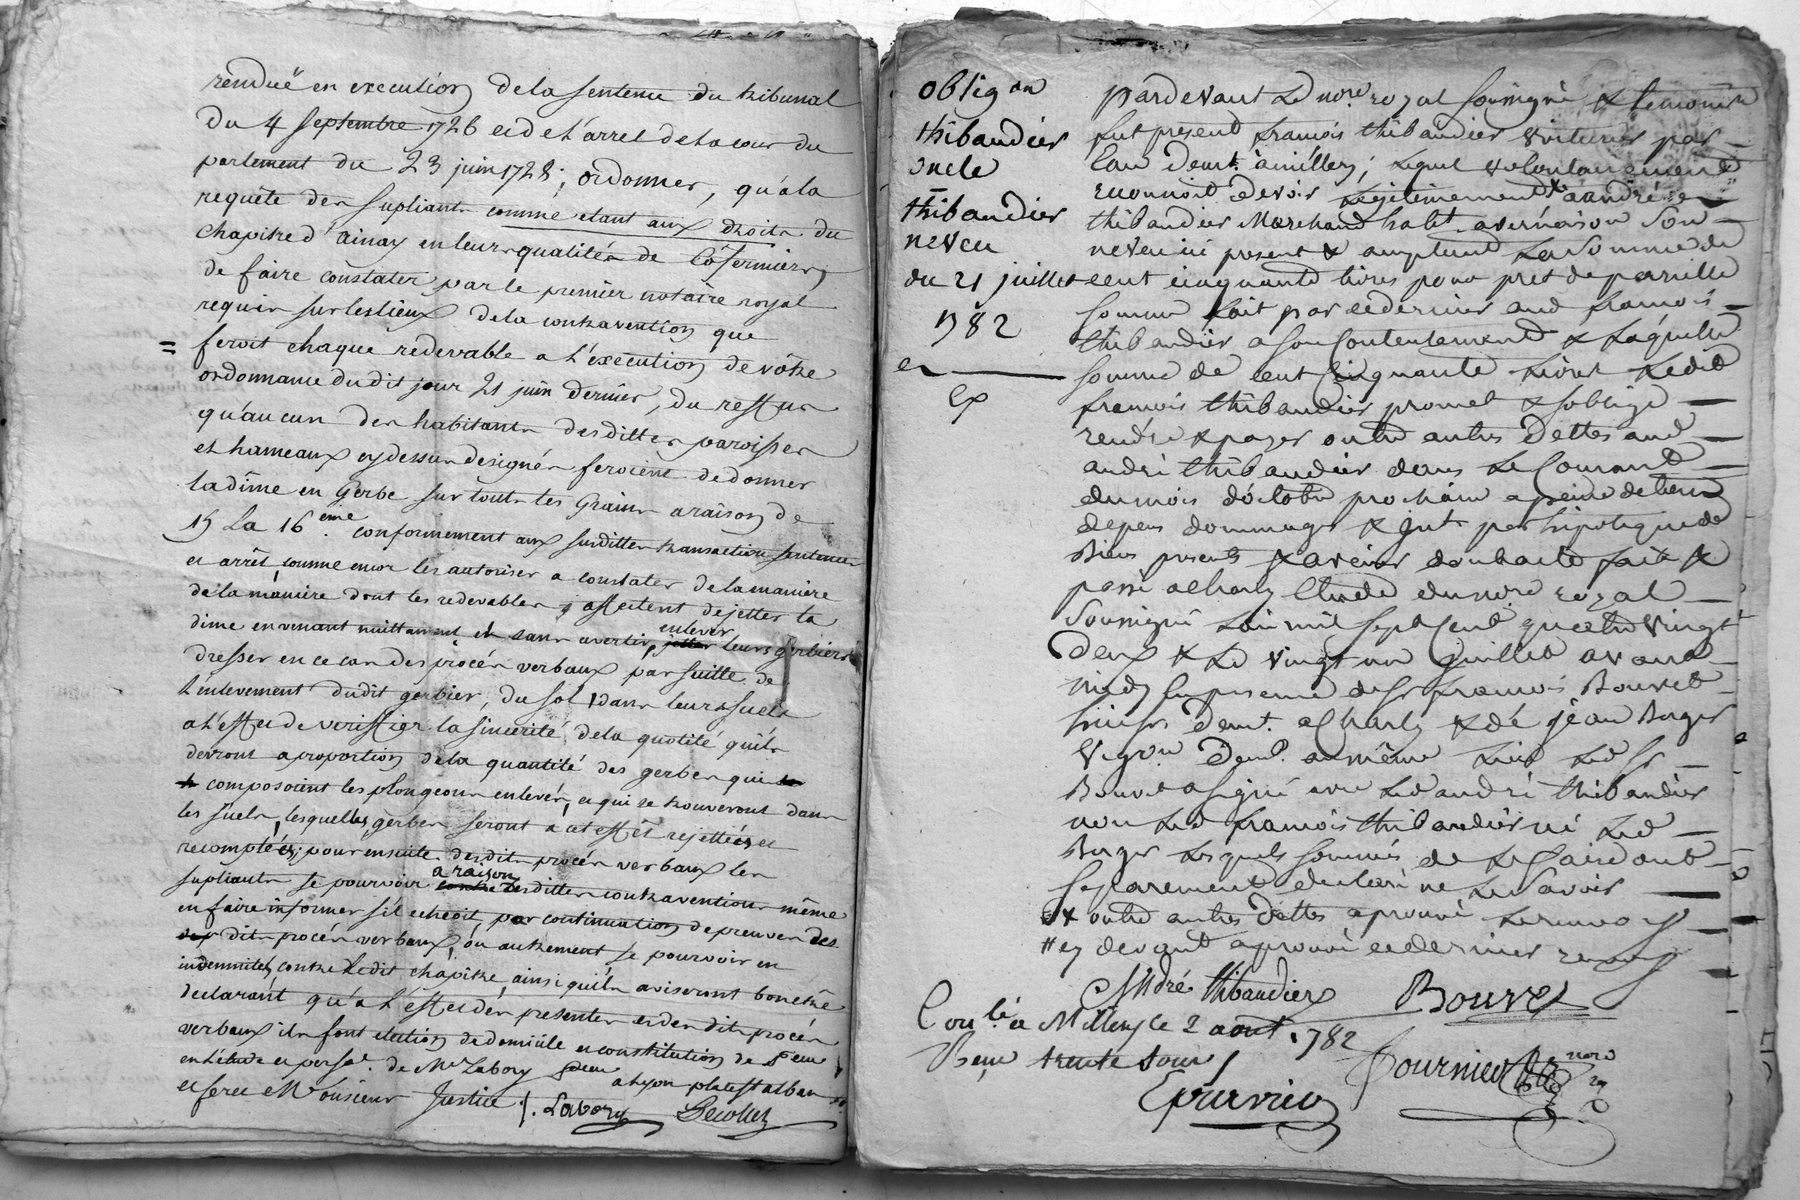 rendüe en execution de la sentence du tribunal
du 4 septembre 1726 et de l'arret de la cour du
parlement du 23 juin 1728; ordonner, qu'a la
requête des supliants comme etant aux droits du
chapitre d'ainay en leurs qualités de Cofermiers
de faire constater par le premier notaire royal
requis sur les lieux de la contravention que
feroit chaque redevable a l'execution de vôtre
ordonnance dudit jour 21 juin dernier, du reffus
qu'aucun des habitants desdittes paroisses
et hameaux cy dessus designés feroient de donner
la dîme en Gerbe sur touts les Grains a raison de
15 La 16.eme conformement aux susdittes transaction sentence
et arrêt, comme encor les autoriser a constater de la maniere
de la maniere dont les redevables affectent de jetter la
dime en venant nuittamment et sans avertir, enlever leurs gerbiers
dresser en ce cas des procés verbaux par suitte de
l'enlevement dudit gerbier, du sol dans leurs suels
a l'effet de veriffier la sincerité de la quotité qu'ils
devront a proportion de la quantité des gerbes qui
composoient les plongeons enlevés, et qui se trouveront dans
les suels, lesquelles gerbes seront a cet effet rejettées et
recomptées; pour ensuite desdits procés verbaux les
supliants se pourvoir a raison desdittes contraventions même
en faire informer s'il echeoit, par continuation de preuves des
dits procés verbaux, ou autrement se pourvoir en
indemnités contre ledit chapitre, ainsi qu'ils aviseront bon être
declarant qu'a l'effet des presentes et desdits procés
verbaux ils font election de domicile et constitution de
en l'etude et perso.e de Me Labory a Lyon place st alban
et serez Monsieur Justice /. Labory
obligon
thibaudier
oncle
thibaudier
neveu
du 21 juillet
1782
ex
pardevant Le nore royal soussigné & temoins
fut present francois thibaudier voiturier par
eau demt. a millery; lequel volontairement
reconnoit devoir legitimement x a andré
thibaudier Marchand habt. a vernaison son
neveu ici present & acceptant La somme de
cent cinquante livres pour pret de pareille
somme fait par ce dernier aud francois
thibaudier a son Contentement & Laquelle
somme de cent Cinquante livres Ledit
francois thibaudier promet & s'oblige
rendre & payer outre autres dettes aud
andré thibaudier dans Le Courant
du mois d'octobre prochain a peine de tous
depens dommages & jnts par hipoteque de
Biens presents & avenir dont acte fait &
passé a Charly Etude du nore royal
Soussigné L'an mil sept Cent quatre vingt
deux & Le vingt un juillet avant
midy en presence de sr francois Bouvet
demt. a Charly & de jean Berger
vigon. demt. au même lieu Led sr
Bouvet a signé avec Led andré thibaudier
non Led francois thibaudier ni Led
Berger Lesquels sommés de Le faire ont
separement declaré ne Le savoir
x outre autres dettes aprouvé Le renvoy
cy devant aprouvé ce dernier renvoy
André thibaudier Bouvet
Conlé a Millery le 2 aout 1782
Reçu trente sous
Fournier nore